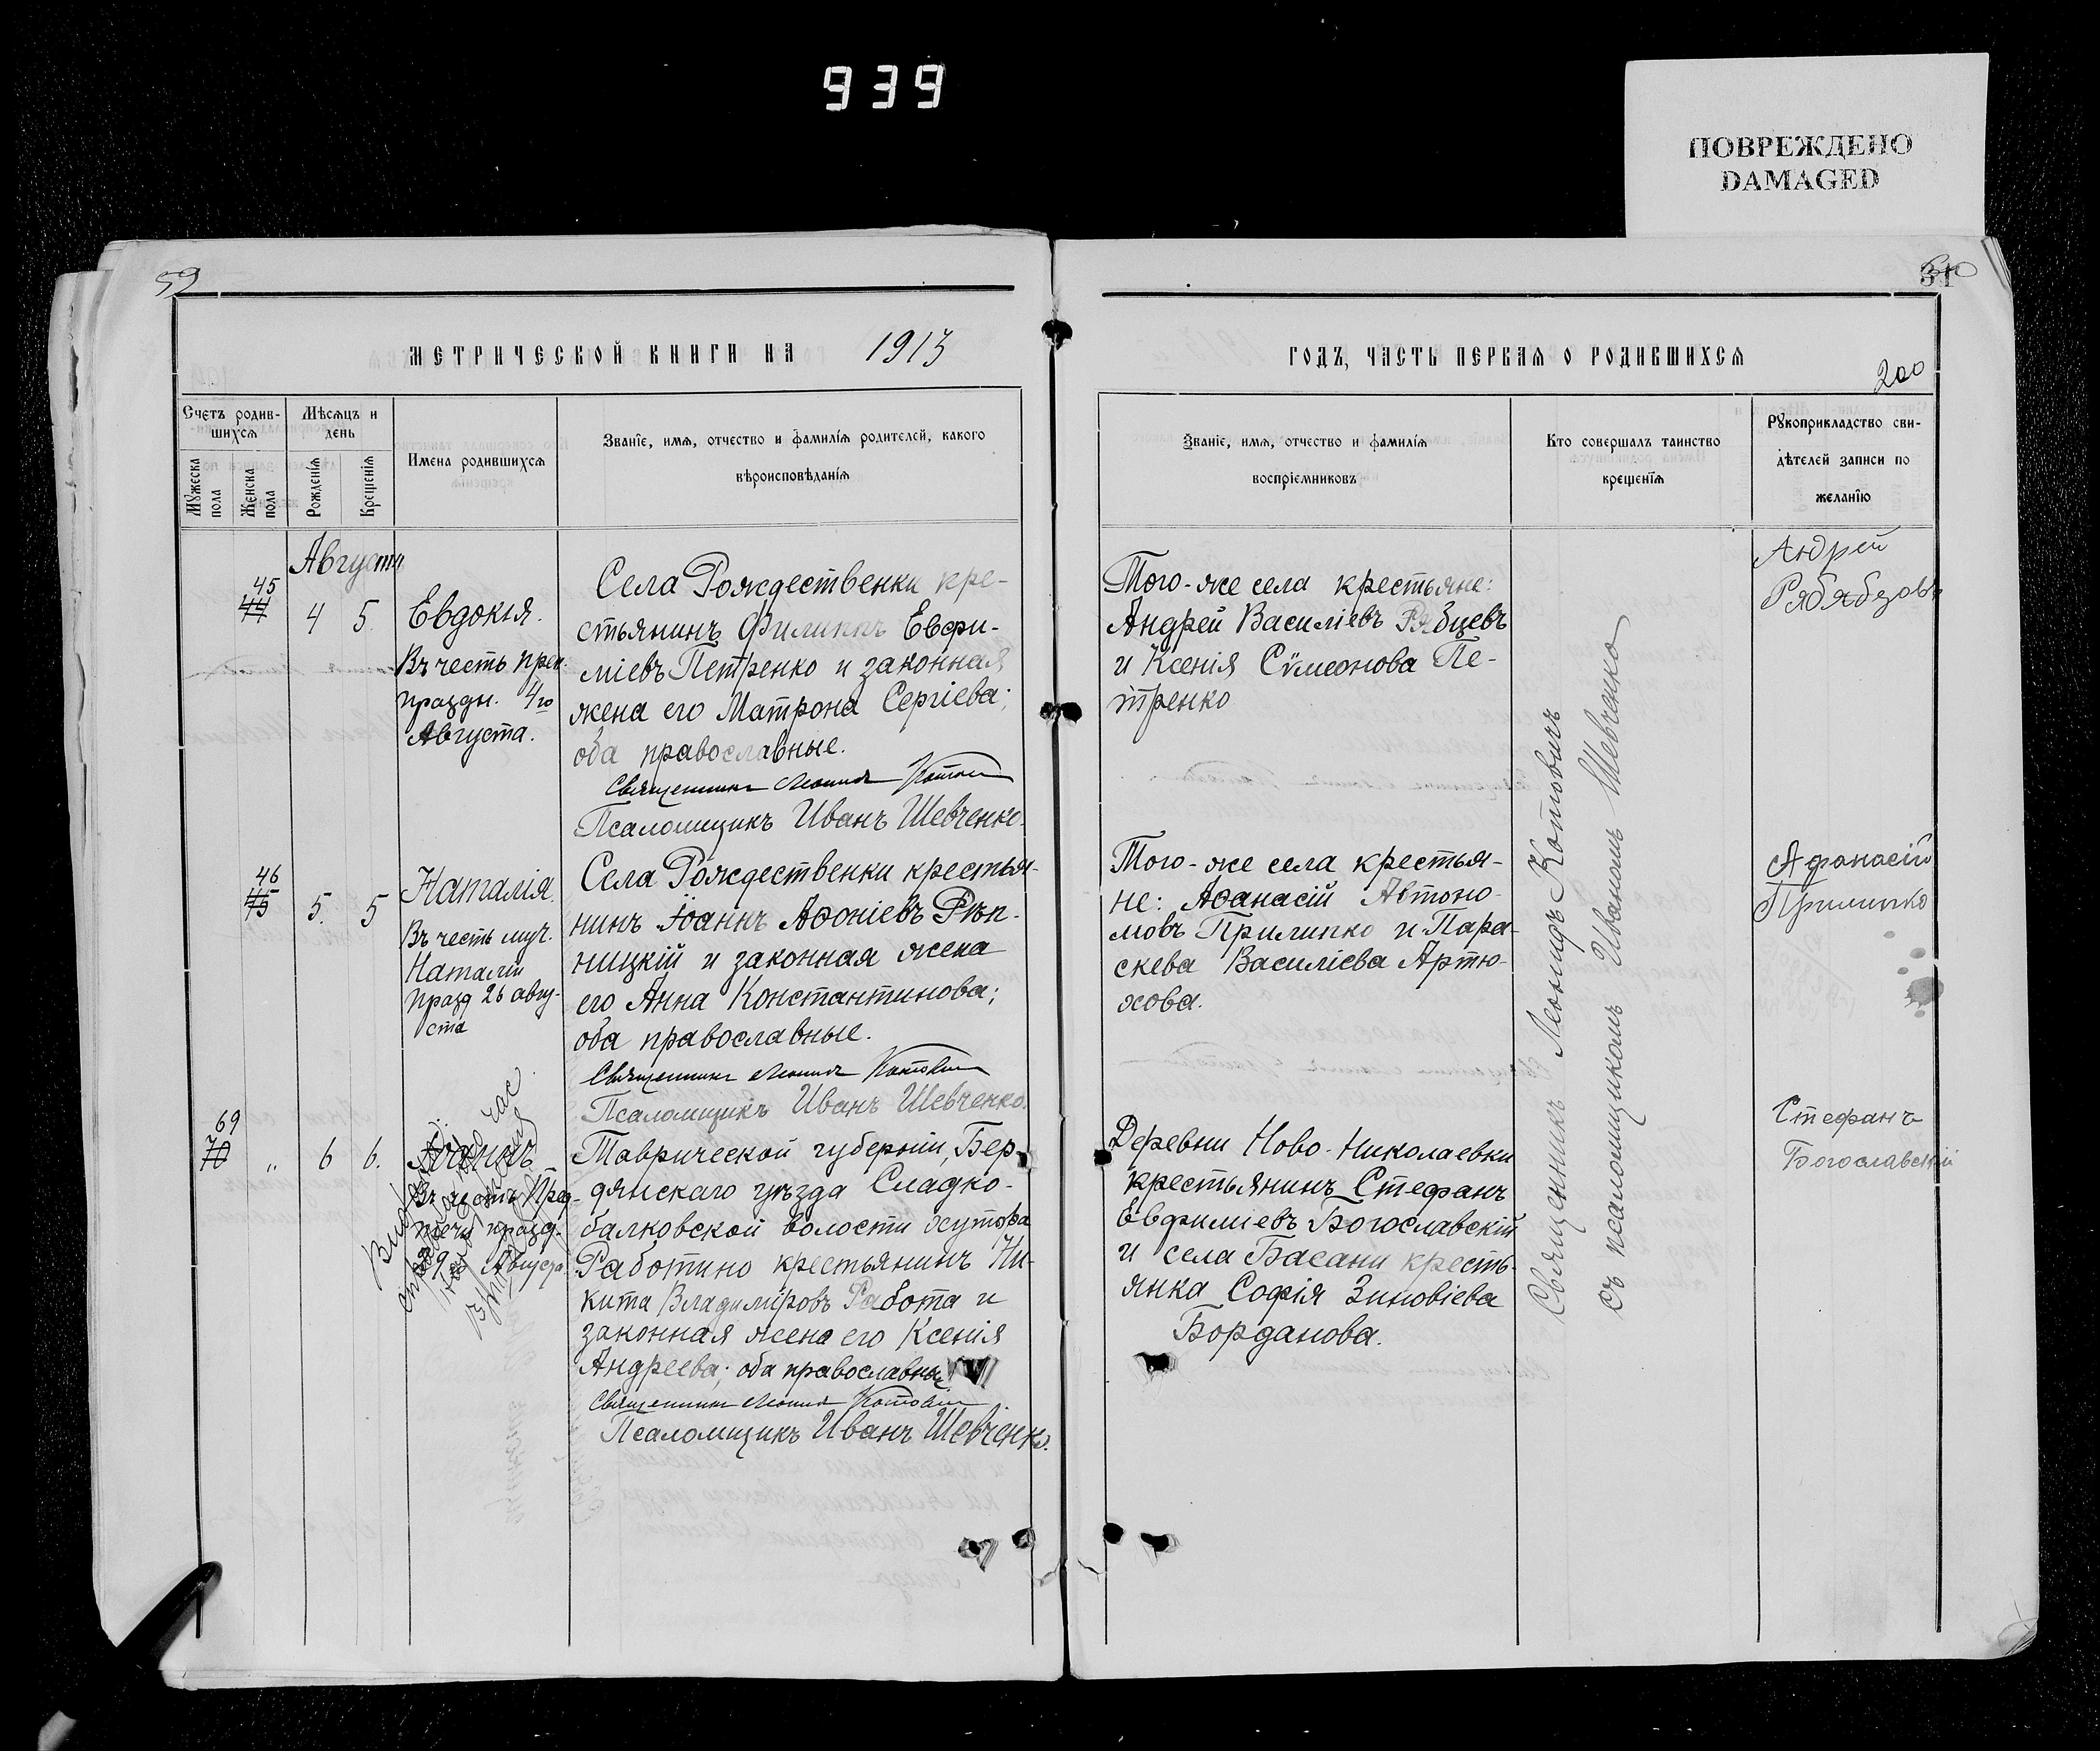 939
ПОВРЕЖДЕНО
DAMAGED
59
31
МЕТРИЧЕСКОЙ КНИГИ НА 1913
ГОДЪ, ЧАСТЬ ПЕРВАЯ О РОДИВШИХСЯ
200
Счетъ родив-
шихся
Мужеска пола
Женска пола
Мѣсяцъ и
день
Рожденія
Крещенія
Имена родившихся
Званіе, имя, отчество и фамилія родителей, какого
вѣроисповѣданія
Званіе, имя, отчество и фамилія
воспріемниковъ
Кто совершалъ таинство
крещенія
Рукоприкладство сви-
дѣтелей записи по
желанію
Августъ
45
44
4 5
Евдокія.
Въ честь преп.
праздн. 4го
Августа.
Села Рождественки кре-
стьянинъ Филиппъ Евфи-
міевъ Петренко и законная
жена его Матрона Сергіева;
оба православные.
Священникъ Леонидъ Котович
Псаломщикъ Иванъ Шевченко.
Того-же села крестьяне:
Андрей Василіевъ Рябцевъ
и Ксенія Сѵмеонова Пе-
тренко
Андрей
46
45
5. 5
Наталія.
Въ честь муч.
Наталіи
празд 26 авгу-
ста
Села Рождественки крестья-
нинъ Іоаннъ Аѳоніевъ Рѣп-
ницкій и законная жена
его Анна Константинова;
оба православные.
Священникъ Леонидъ Котович
Псаломщикъ Иванъ Шевченко.
Того-же села крестья-
не: Аѳанасій Автоно-
мовъ Прилипко и Пара-
скева Василіева Артю-
хова.
Афанасій
Прилипко
69
70 " 6 6.
Іоаннъ
Въ честь Пред-
течи празд.
29 Августа
Таврической губерніи, Бер-
дянскаго уѣзда Сладко-
балковской волости хутора
Работино крестьянинъ Ни-
кита Владиміровъ Работа и
законная жена его Ксенія
Андреева; оба православны
Священникъ Леонидъ Котович
Псаломщикъ Иванъ Шевченко.
Деревни Ново-Николаевки
крестьянинъ Стефанъ
Евфиміевъ Богославскій
и села Басани кресть-
янка Софія Зиновіева
Борданова.
Стефанъ
Богославскій
Священникъ Леонидъ Котовичъ
съ псаломщикомъ Иваномъ Шевченко